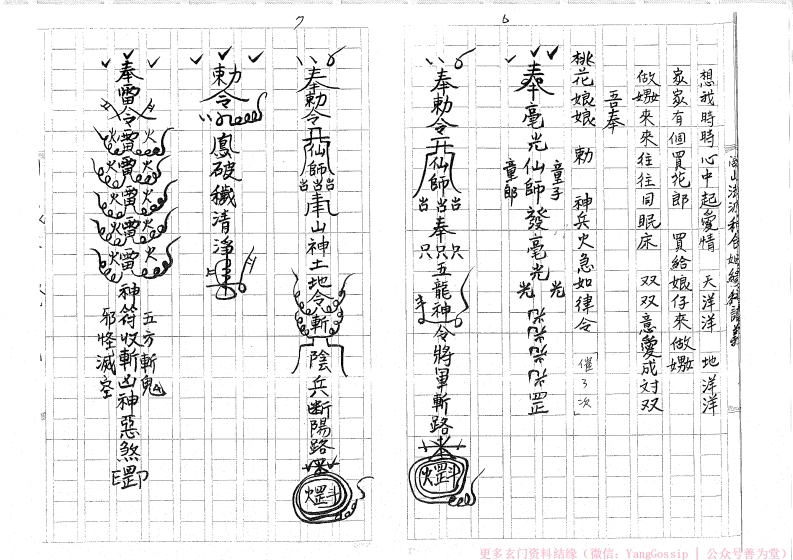 6
想我時時心中起愛情 天洋洋 地洋洋
家家有個買花郎 買給娘仔來做嫐
做嫐來來往往同眠床 双双意愛成対双
吾奉
桃花娘娘 勅 神兵火急如律令 催3次」
奉亳光仙師發亳光光光光光罡
童子
童郎
光
光
奉勅令 仙師奉 五龍神令將軍斬路
罡
7
奉勅令 仙師 山神土地令斬 陰兵断陽路
罡
勅令 鳳破穢清淨
奉雷令雷雷雷雷雷神符收斬凶神惡煞罡
火火火火火
火火火火火
五方斬鬼
邪怪滅空
更多玄门资料结缘（微信：YangGossip | 公众号善为堂）